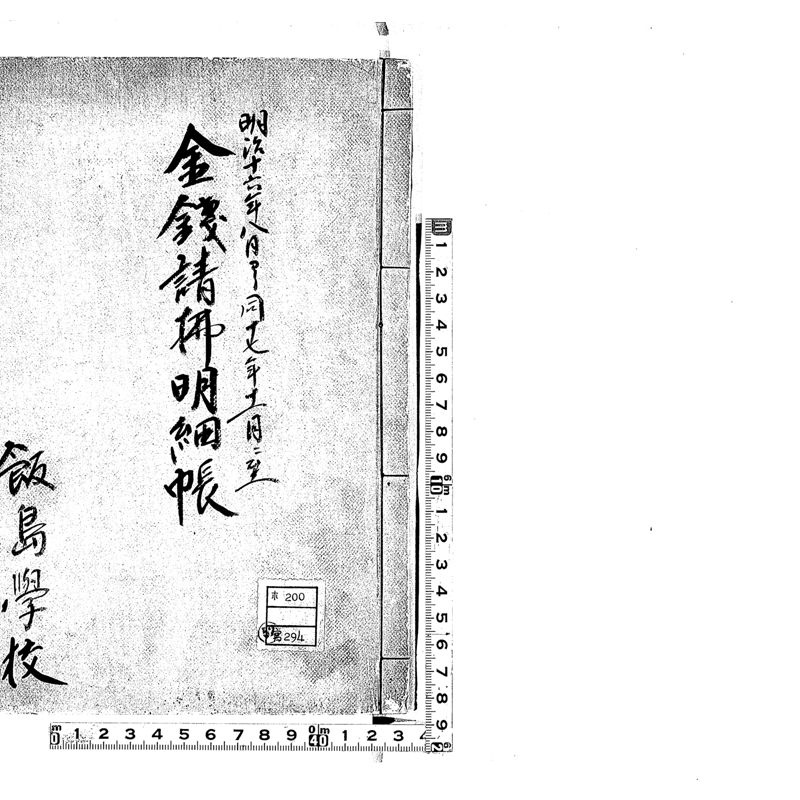 明治十六年八月ヨリ同十七年十二月ニ至
金錢請拂明細帳
飯島學校
ホ 200
294
m 1 2 3 4 5 6 7 8 9 10 1 2 3 4 5 6 7 8 9
0 1 2 3 4 5 6 7 8 9 1 2 3